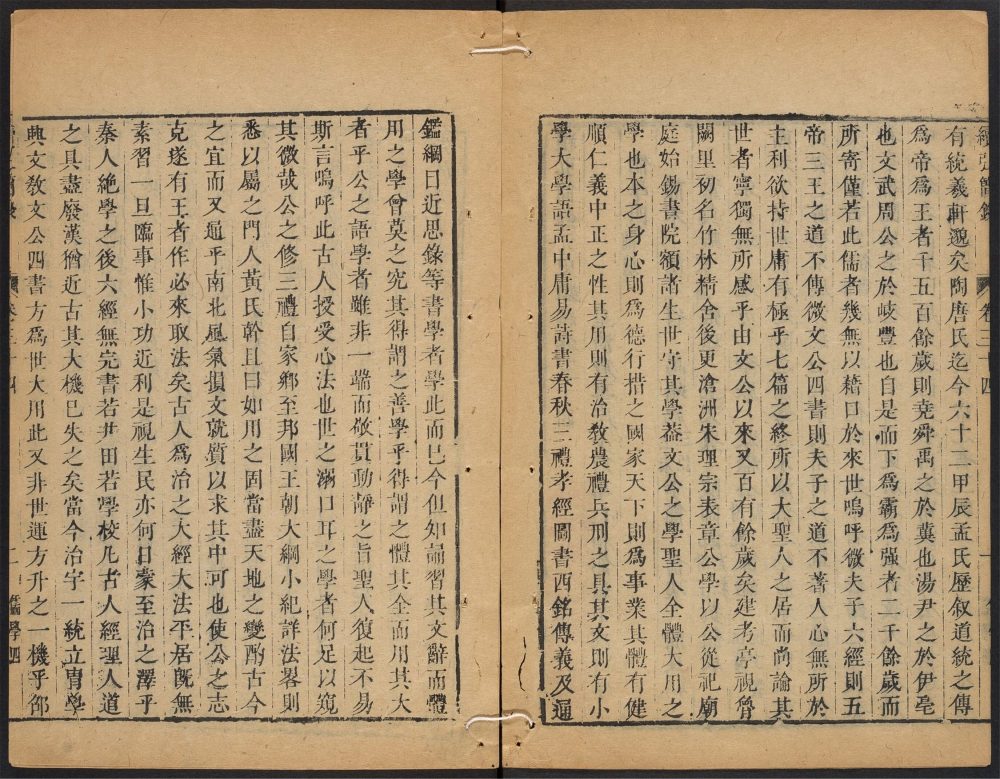 續弘簡錄 卷三十四
有統羲軒邈矣陶唐氏迄今六十二甲辰孟氏歷叙道統之傳
爲帝爲王者千五百餘歲則堯舜禹之於冀也湯尹之於伊亳
也文武周公之於岐豐也自是而下爲霸爲强者二千餘歲而
所寄僅若此儒者幾無以藉口於來世嗚呼微夫子六經則五
帝三王之道不傳微文公四書則夫子之道不著人心無所於
主利欲持世庸有極乎七篇之終所以大聖人之居而尚論其
世者寧獨無所感乎由文公以來又百有餘歲矣建考亭視魯
闕里初名竹林精舍後更滄洲宋理宗表章公學以公從祀廟
庭始錫書院額諸生世守其學葢文公之學聖人全體大用之
學也本之身心則爲德行措之國家天下則爲事業其體有健
順仁義中正之性其用則有治敎農禮兵刑之具其文則有小
學大學語孟中庸易詩書春秋三禮孝經圖書西銘傳義及通
鑑綱目近思錄等書學者學此而已今但知誦習其文辭而體
用之學曾莫之究其得謂之善學乎得謂之體其全而用其大
者乎公之語學者雖非一端而敬貫動靜之旨聖人復起不易
斯言嗚呼此古人授受心法也世之溺口耳之學者何足以窺
其微哉公之修三禮自家鄉至邦國王朝大綱小紀詳法畧則
悉以屬之門人黃氏幹且曰如用之固當盡天地之變酌古今
之宜而又通乎南北風氣損文就質以求其中可也使公之志
克遂有王者作必來取法矣古人爲治之大經大法平居既無
素習一旦臨事惟小功近利是視生民亦何日蒙至治之澤乎
秦人絶學之後六經無完書若井田若學校凡古人經理人道
之具盡廢漢猶近古其大機巳失之矣當今治宇一統立胄學
典文敎文公四書方爲世大用此又非世運方升之一機乎邵
二 儒學四